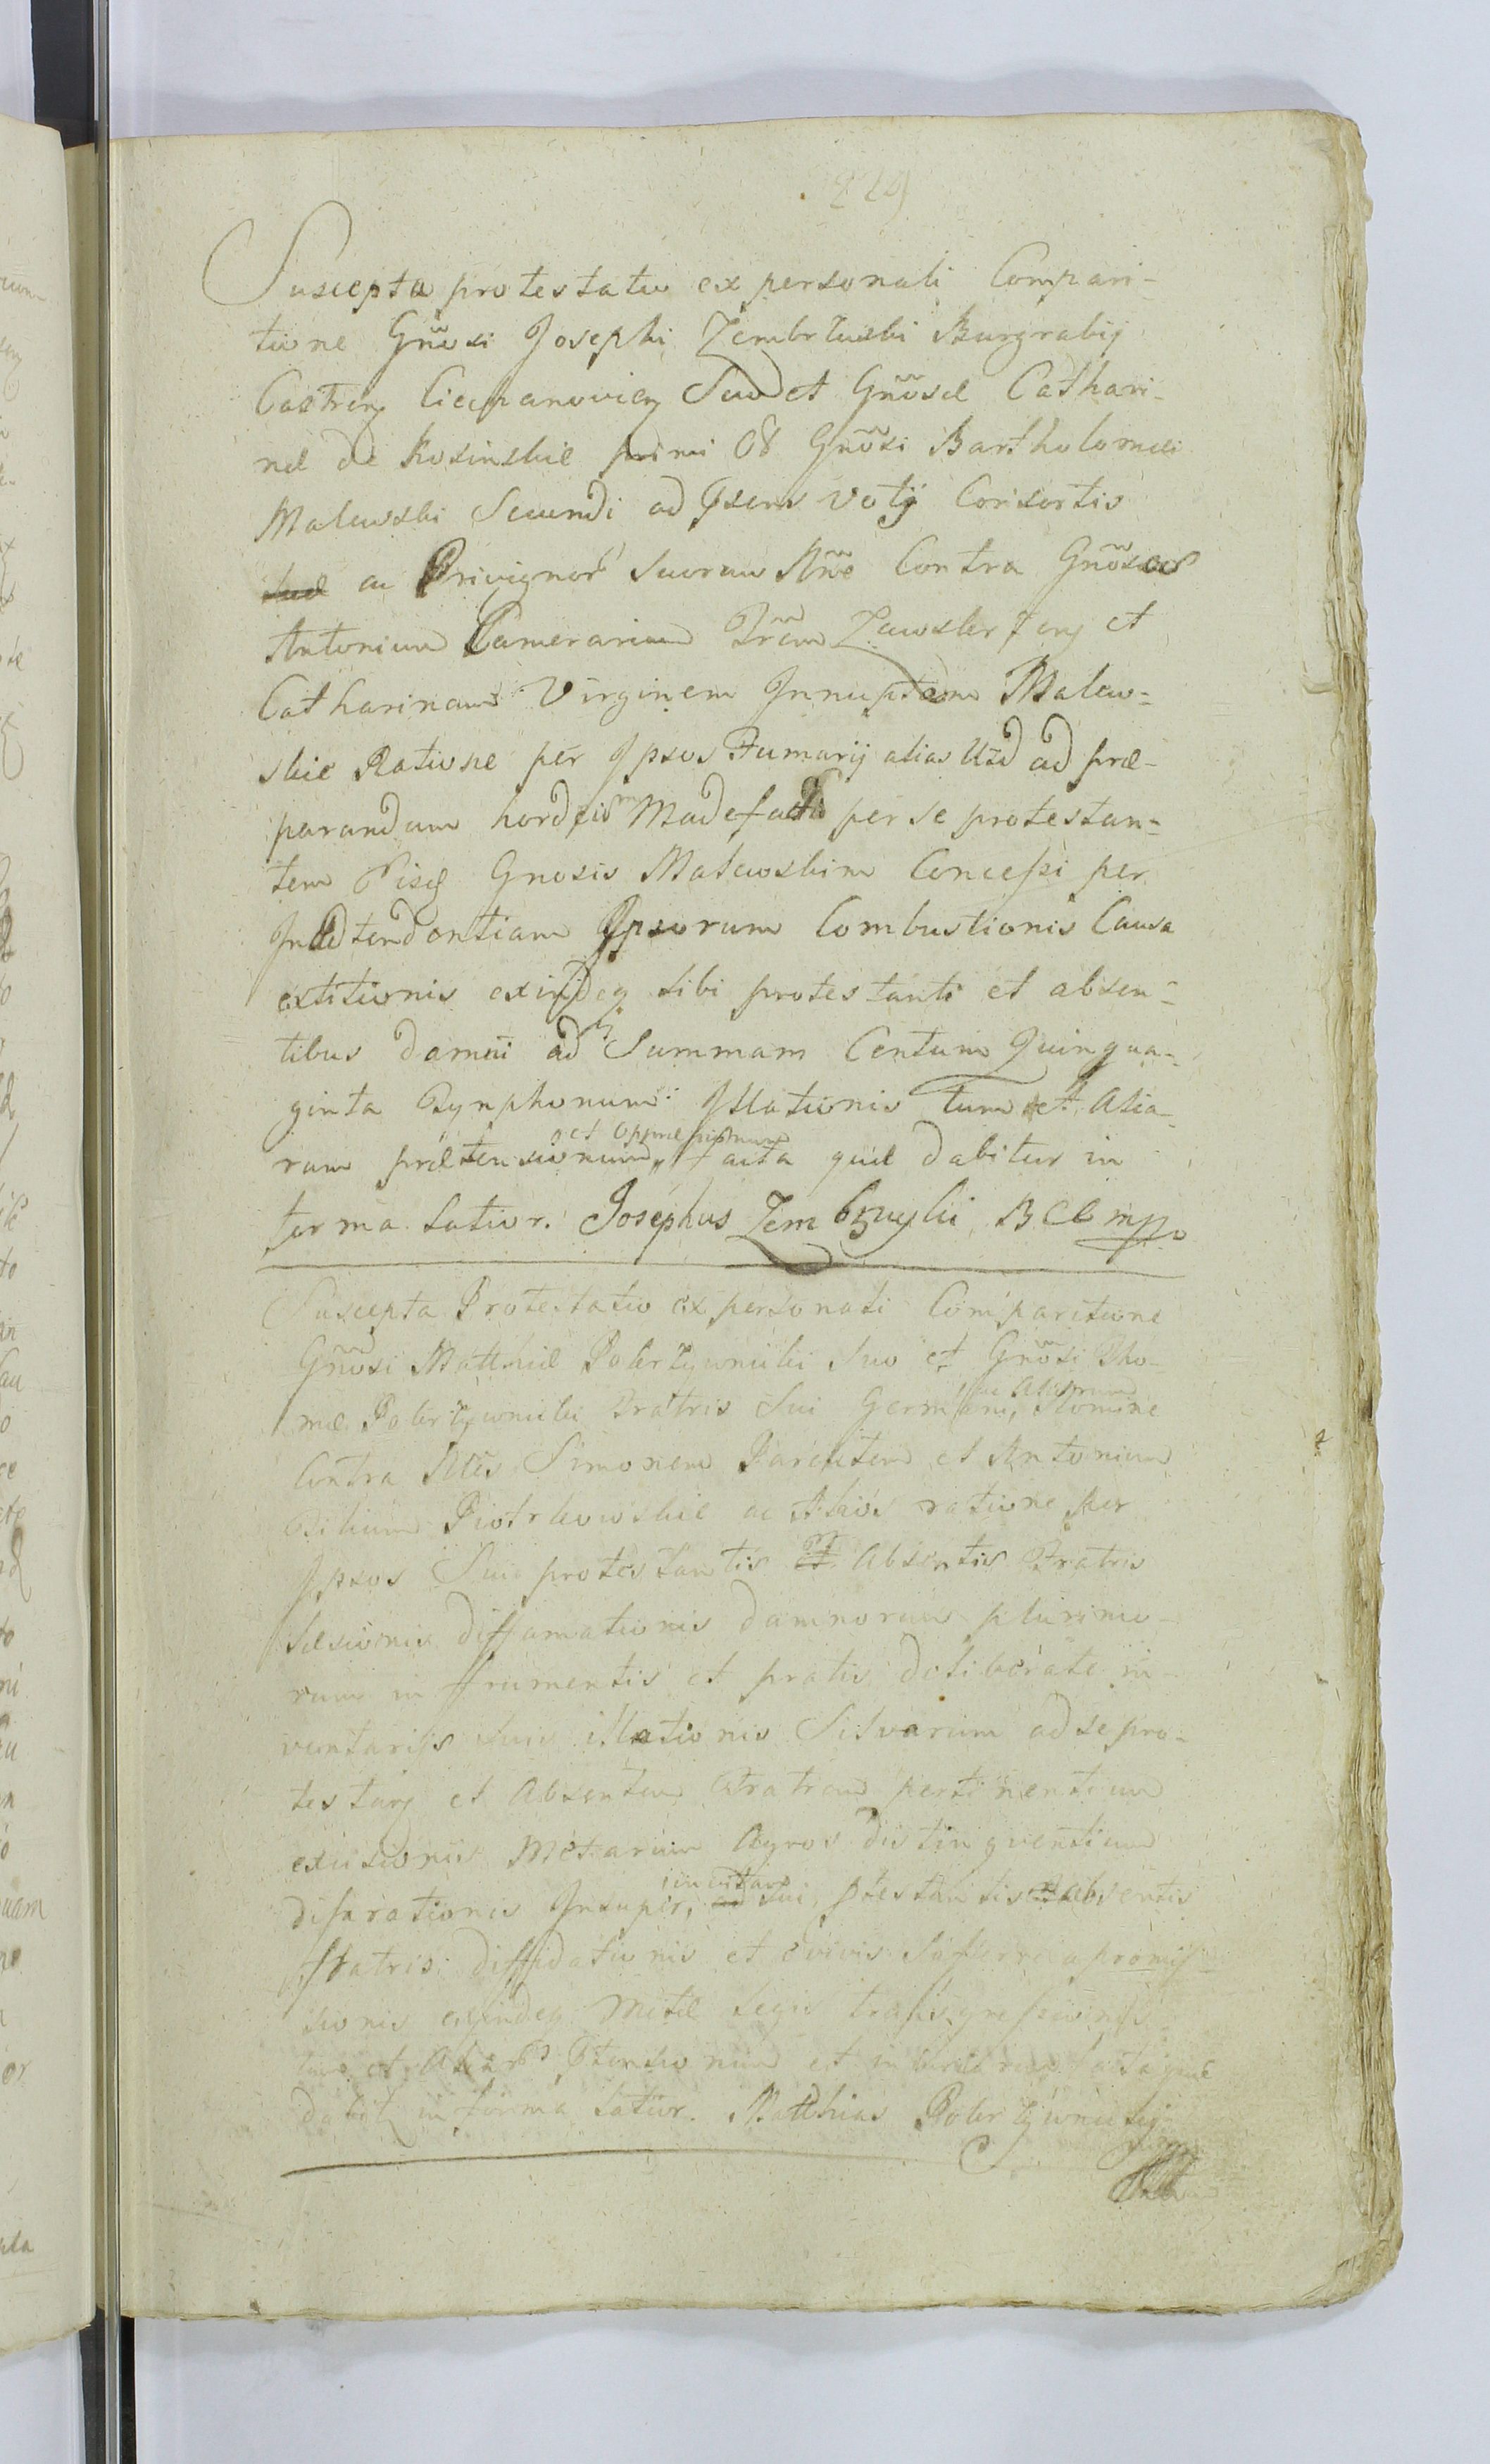 229
Suscepta protestatio ex personali Compari-
tione Gnosi Josephi Zembrzuski Burgrabij
Castren Ciechanovien Suo et Gnosæ Cathari-
næ de Kosinskie primi Gnosi Bartholomei
Malewski Secundi ad psens Votij Consortis
suæ ac Privignor Suorum Nne Contra Gnosos
Antonium Camerarium Trem Zawskrzen et
Catharinam Virginem Innuptam Malew-
skie Ratione per Ipsos Fumarij alias Ozd ad præ-
parandum hordeum Madefacti per se protestan-
tem Gnosis Malewskim Concessi per
Inadtendentiam Ipsorum Combustionis Causa
extitionis exindeq sibi protestanti et absen-
tibus damni ad Summam Centum Quinqua-
ginta Tynphonum Illationis tum et Alia-
rum prætensionum et oppræssionum facta quæ dabitur in
forma Latior. Josephus Zembrzuski BCC mpp
Suscepta Protestatio ex personali Comparitione
Gnosi Matthiæ Pokrzywnicki Suo et Gnosi Tho-
mæ Pokrzywnicki Fratris Sui Germani, ac Aliorum Nomine
Contra Simonem Parentem et Antonium
Filium Piotrkowskie ac Alios ratione per
Ipsos Sui protestantis et Absentis Fratris
Læsionis diffamationis damnorum plurimo-
rum in frumentis et pratis deliberate in-
ventarijs suis illationis Silvarum ad se pro-
testan et Absentem Fratrem pertinentium
excisionis Metarum Agros distinguentium
disparationis Insuper, in vitam sui ptestantis et absentis
fratris diffidationis et promis-
sionis exindeq Metæ Legis transgressionis
tum et Aliar Ptensionum et facta quæ
dabit in forma Latior. Matthias Pokrzywnicki